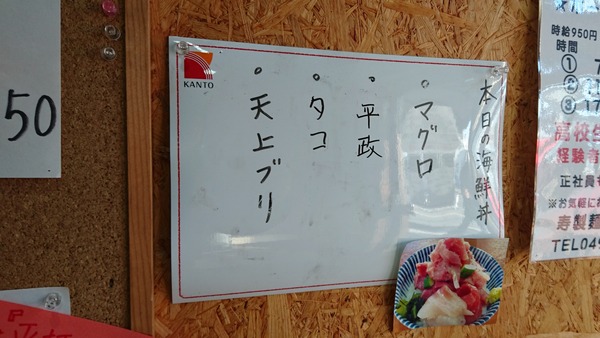 50
KANTO
本日の海鮮丼
。マグロ
。平政
。タコ
。天上ブリ
時給950円
時間
①
②
③ 17
高校生
経験者
正社員も
※お気軽にお
寿製麺
TEL049